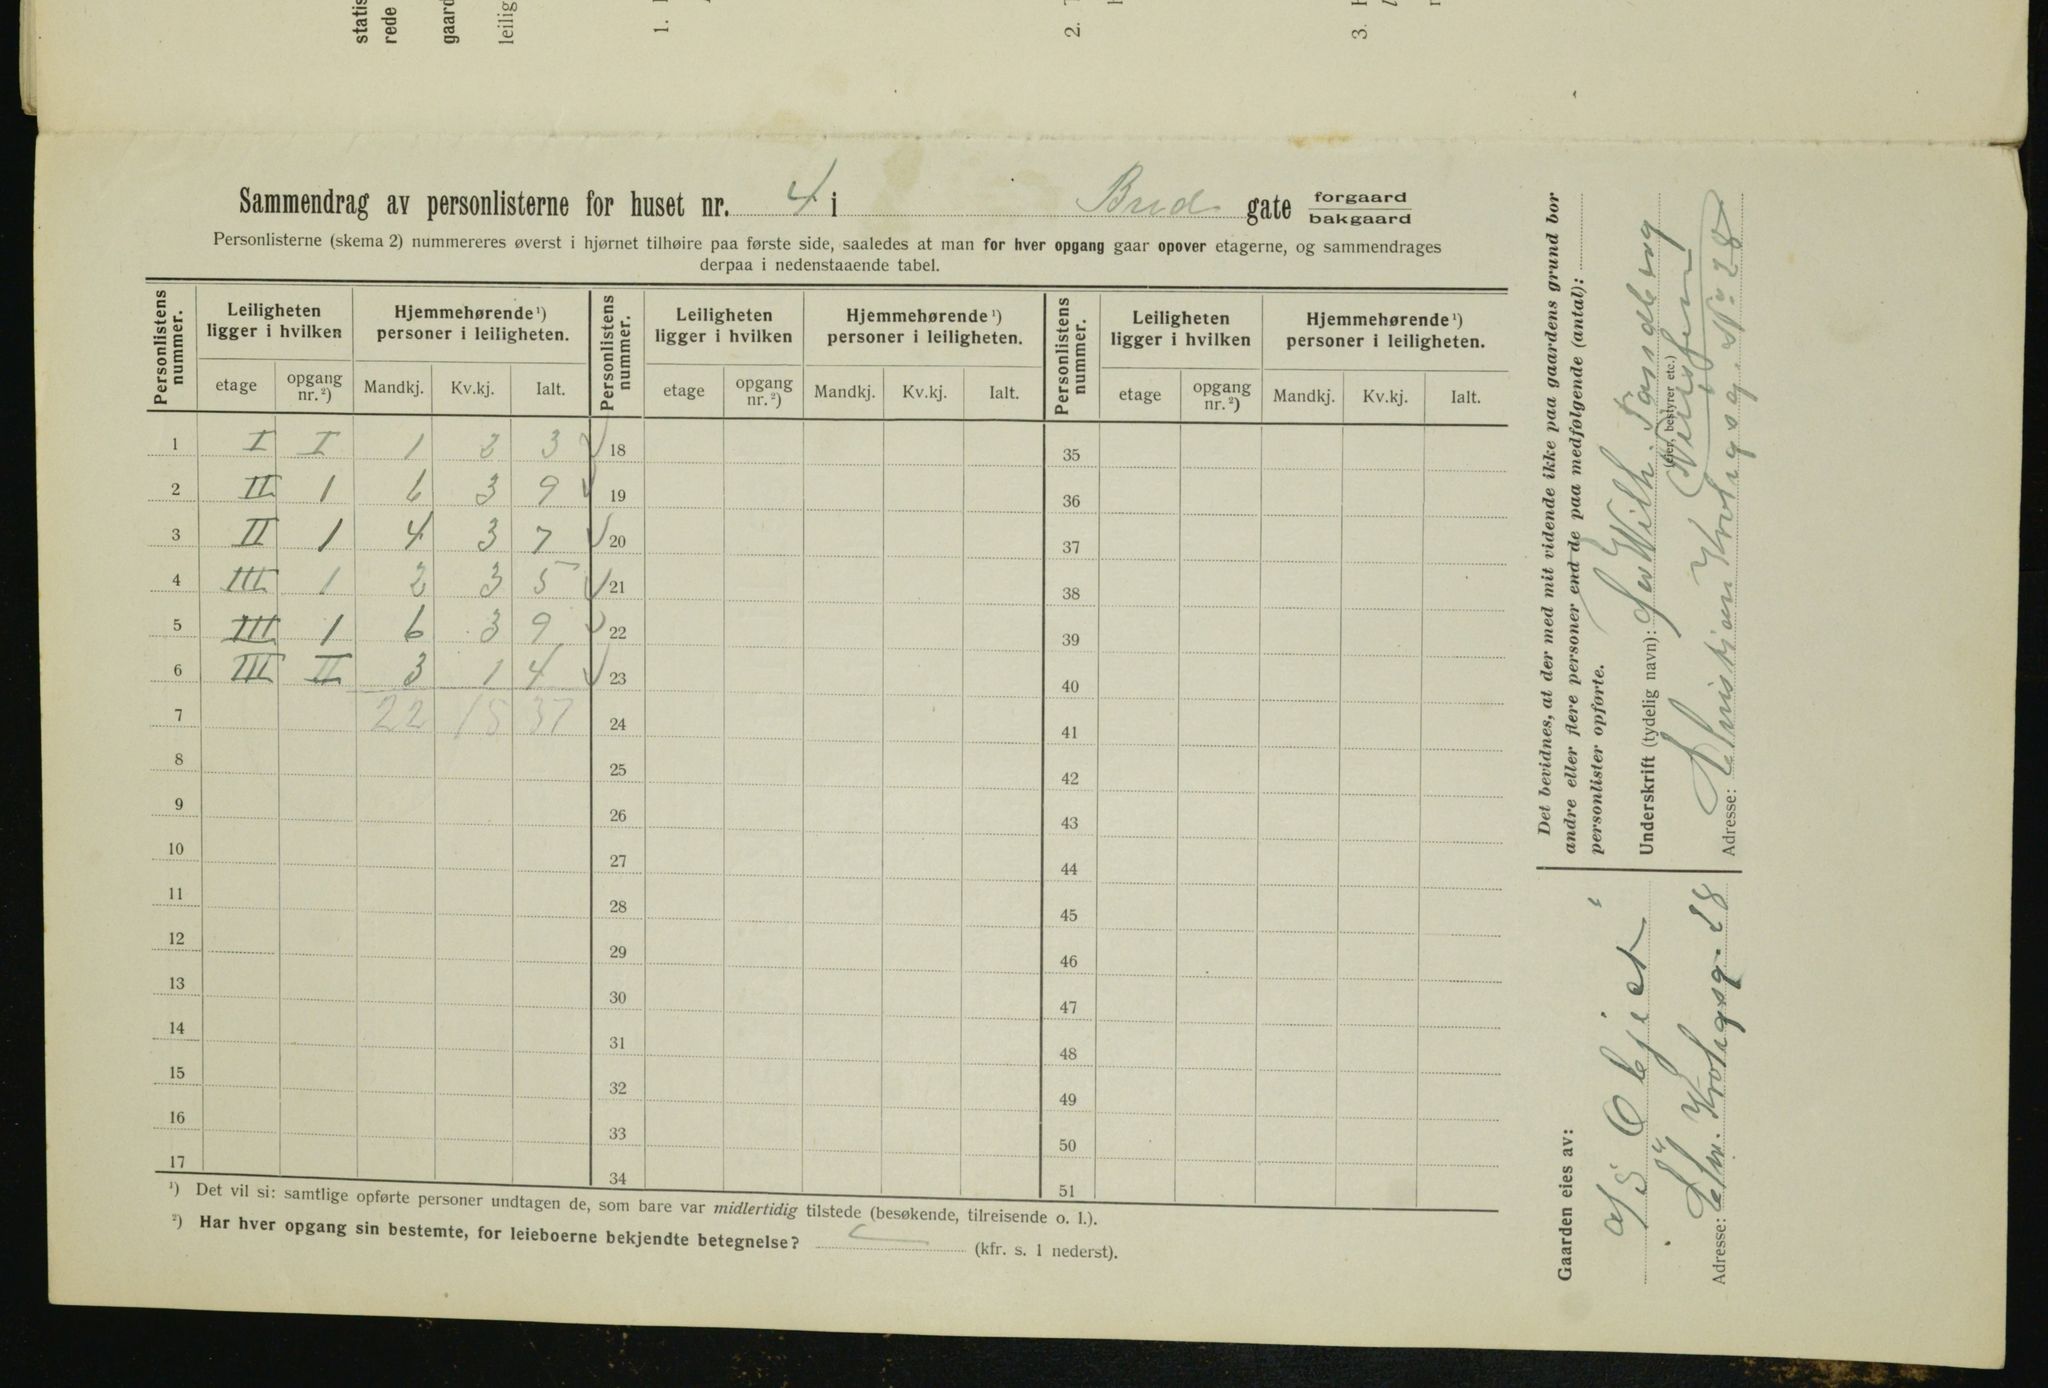 statis
rede
gaard
leilig
1.
2.
3.
Sammendrag av personlisterne for huset nr. 4 i Bred gate forgaard bakgaard
Personlisterne (skema 2) nummereres øverst i hjørnet tilhøire paa første side, saaledes at man for hver opgang gaar opover etagerne, og sammendrages
derpaa i nedenstaaende tabel.
Personlistens nummer. Leiligheten ligger i hvilken Hjemmehørende ¹) personer i leiligheten. Personlistens nummer. Leiligheten ligger i hvilken Hjemmehørende ¹) personer i leiligheten. Personlistens nummer. Leiligheten ligger i hvilken Hjemmehørende ¹) personer i leiligheten.
etage opgang nr. ²) Mandkj. Kv.kj. Ialt. etage opgang nr. ²) Mandkj. Kv.kj. Ialt. etage opgang nr. ²) Mandkj. Kv.kj. Ialt.
1 I I 1 2 3 18 35
2 II 1 6 3 9 19 36
3 II 1 4 3 7 20 37
4 III 1 2 3 5 21 38
5 III 1 6 3 9 22 39
6 III II 3 1 4 23 40
7 22 15 37 24 41
8 25 42
9 26 43
10 27 44
11 28 45
12 29 46
13 30 47
14 31 48
15 32 49
16 33 50
17 34 51
¹) Det vil si: samtlige opførte personer undtagen de, som bare var midlertidig tilstede (besøkende, tilreisende o. l.).
²) Har hver opgang sin bestemte, for leieboerne bekjendte betegnelse? (kfr. s. 1 nederst).
Det bevidnes, at der med mit vidende ikke paa gaardens grund bor
andre eller flere personer end de paa medfølgende (antal):
personlister opførte.
Underskrift (tydelig navn): Wilh.
(eier, bestyrer etc.)
Adresse: Christian Krohgsg. No. 28
Gaarden eies av:
Objet
Adresse: Chr. Krohgsg. 28